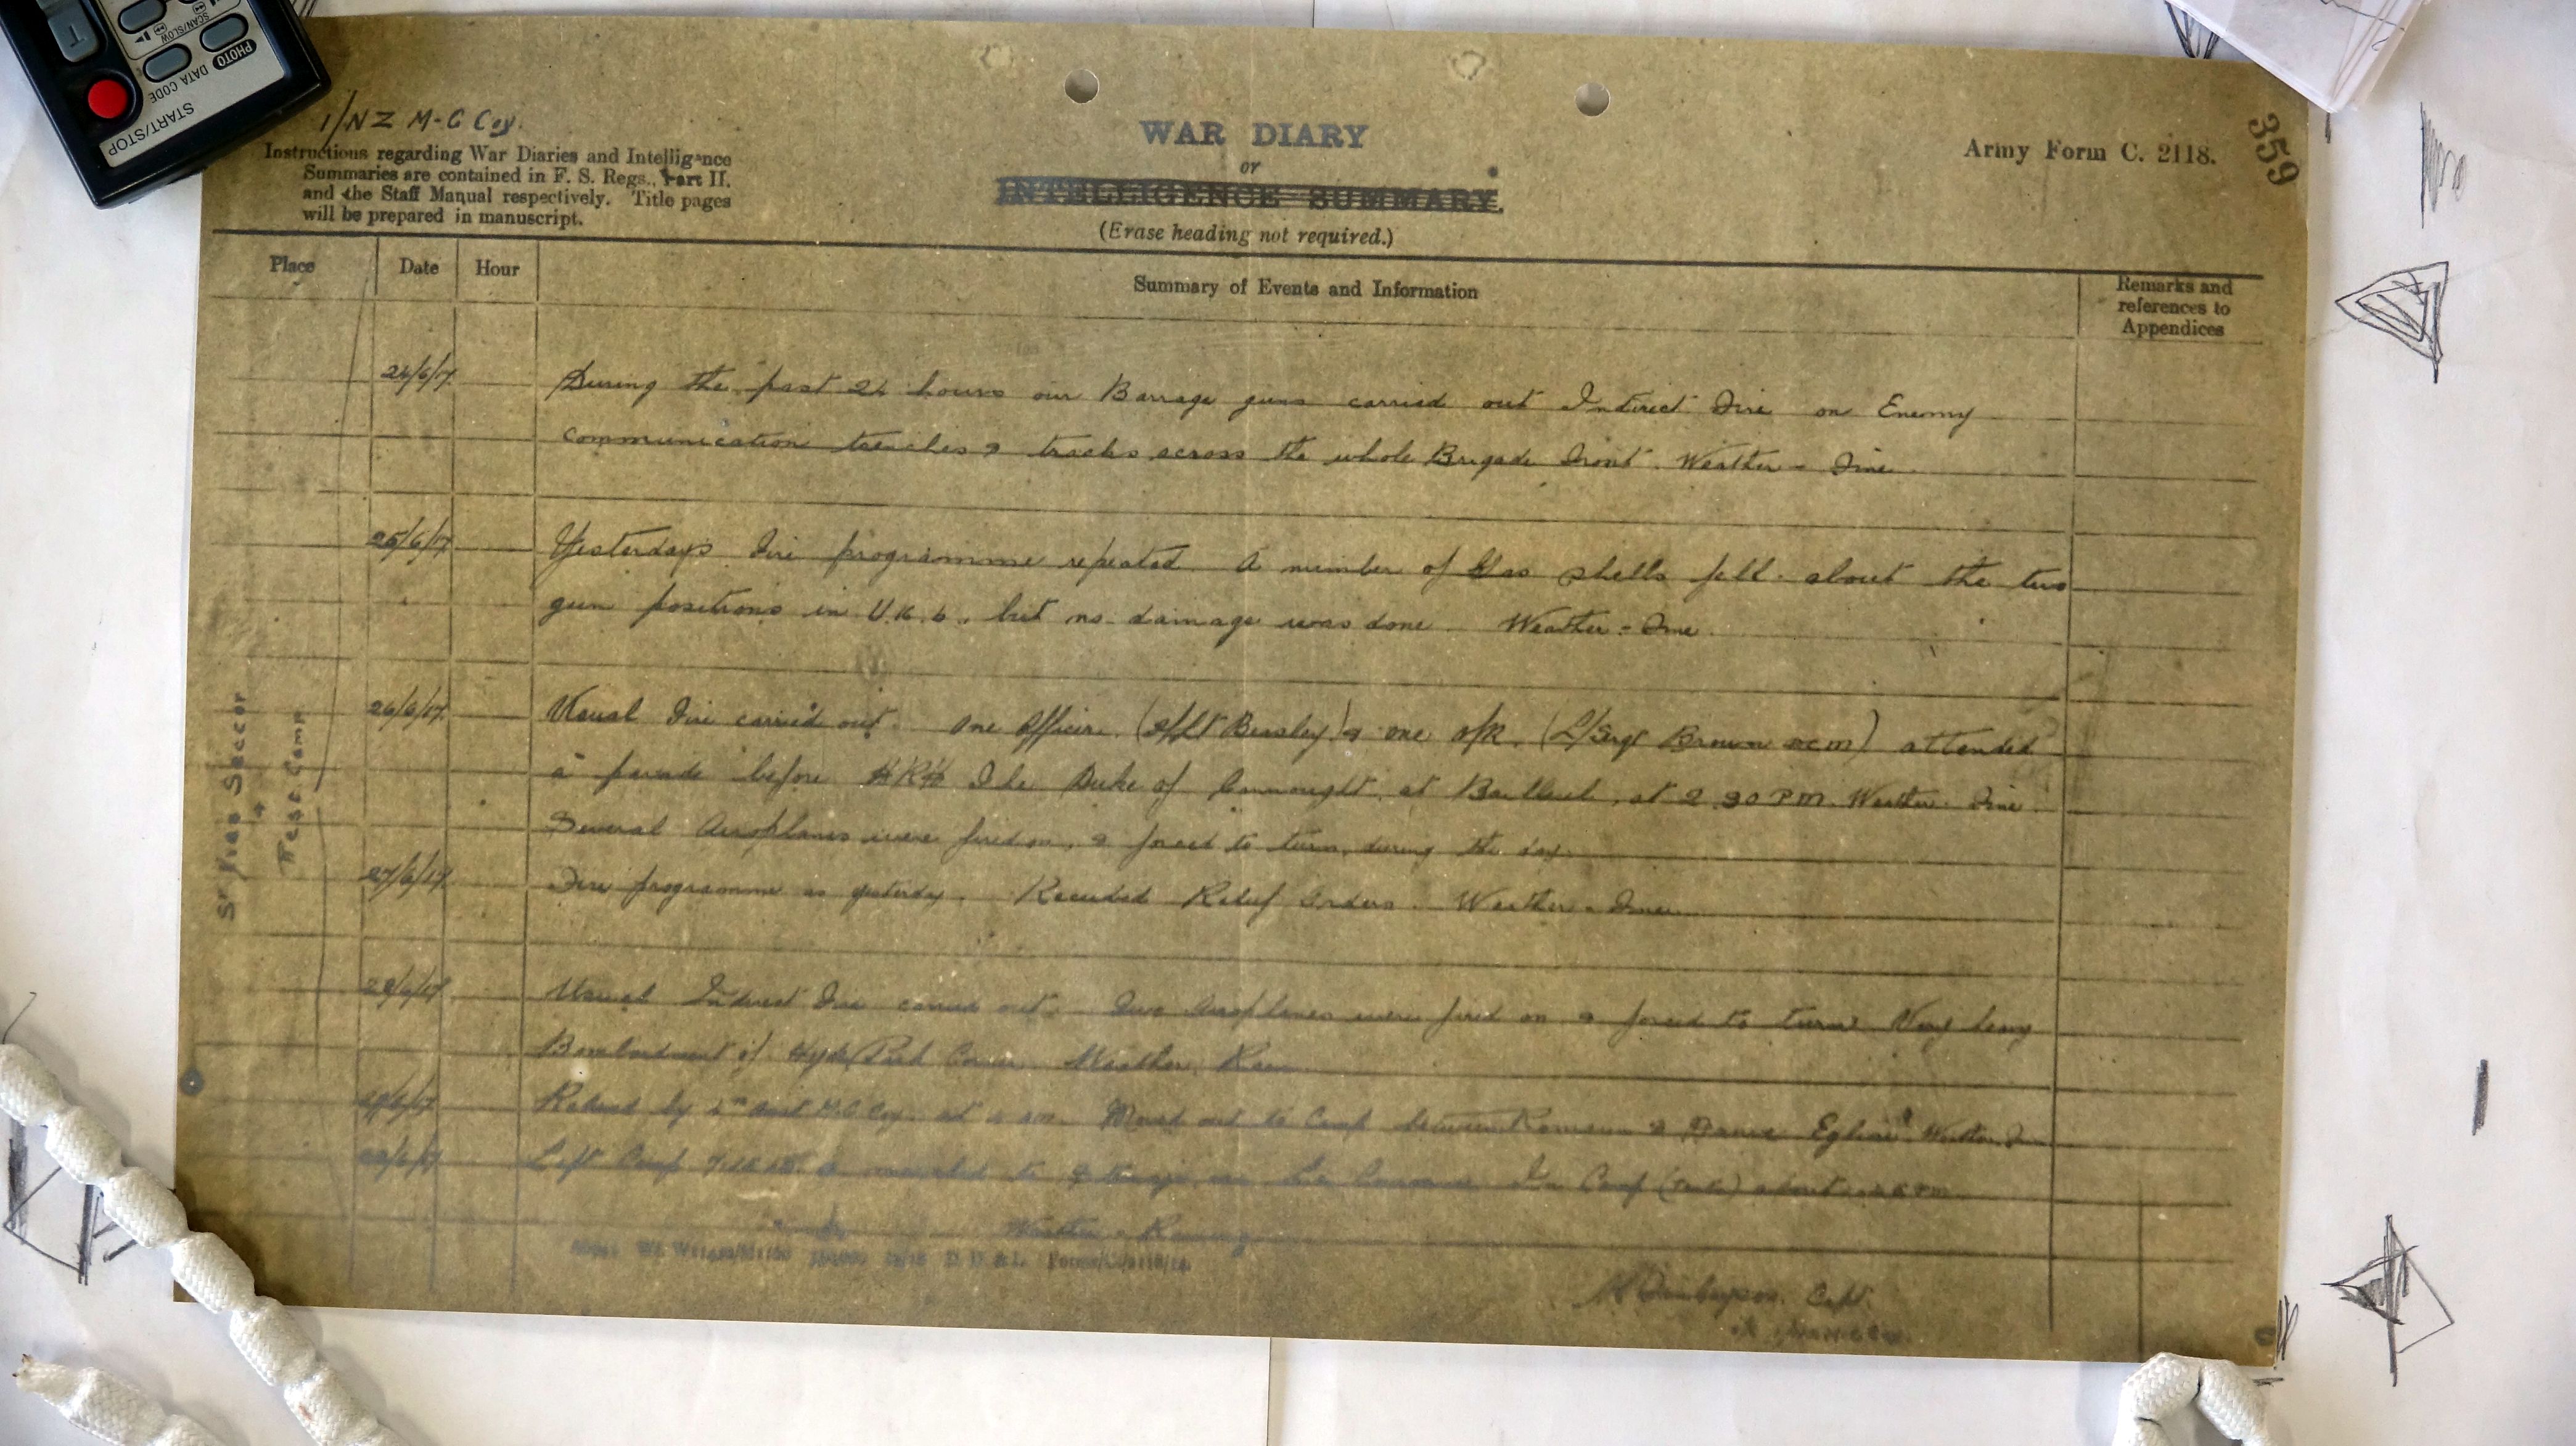 START/STOP
DATA CODE
PHOTO
SCAN/SLOW
T
1/NZ M-G Coy.
Instructions regarding War Diaries and Intelligence
Summaries are contained in F. S. Regs., Part II.
and the Staff Manual respectively. Title pages
will be prepared in manuscript.
WAR DIARY
or
INTELLIGENCE SUMMARY.
(Erase heading not required.)
Army Form C. 2118.
359
Place
Date
Hour
Summary of Events and Information
Remarks and
references to
Appendices
24/6/17. During the past 24 hours our Barrage guns carried out Indirect Fire on Enemy
communication trenches & tracks across the whole Brigade Front. Weather - Fine.
25/6/17 Yesterdays Fire programme repeated. A number of Gas shells fell about the two
gun positions in but no damage was done. Weather - Fine.
26/6/17. Usual Fire carried out. One Officer. (2/Lt Beasley) & one o/R. (L/Sergt Brown DCM) attended
a parade before HRH The Duke of Connaught, at Bailleul, at 2.30 PM. Weather. Fine.
Several Aeroplanes were fired on, & forced to turn, during the day.
27/6/17. Fire programme as yesterday. Received Relief Orders. Weather - Fine.
28/6/17. Usual Indirect Fire carried out. Two Aeroplanes were fired on & forced to turn. Very heavy
Bombardment of Hyde Park Corner. Weather,
29/6/17 Relieved by 4th Aust M.G. Coy. at Moved out to Camp between Romarin & Eglise. Weather
30/6/17 Left Camp & marched to In Camp (Tents) about
Weather - Raining
Capt.
St Yves Sector
+
Test Camp